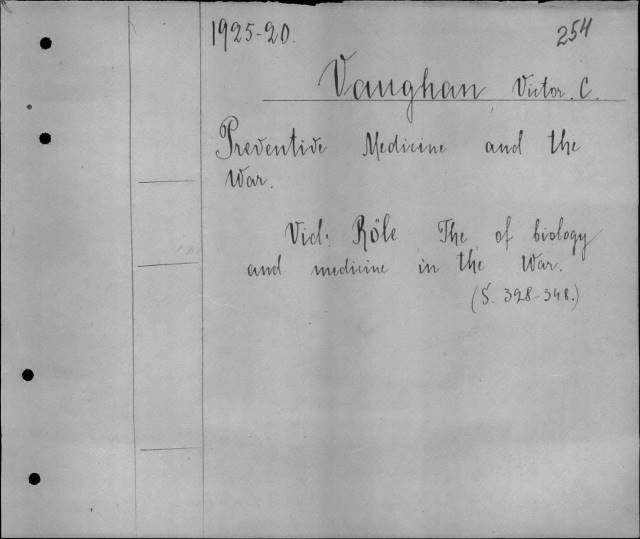 1925-20. 254
Vaughan, Victor. C.
Preventive Medicine and the
War.
Vid: Röle, The, of biology
and medicine in the War.
(S. 328-348.)